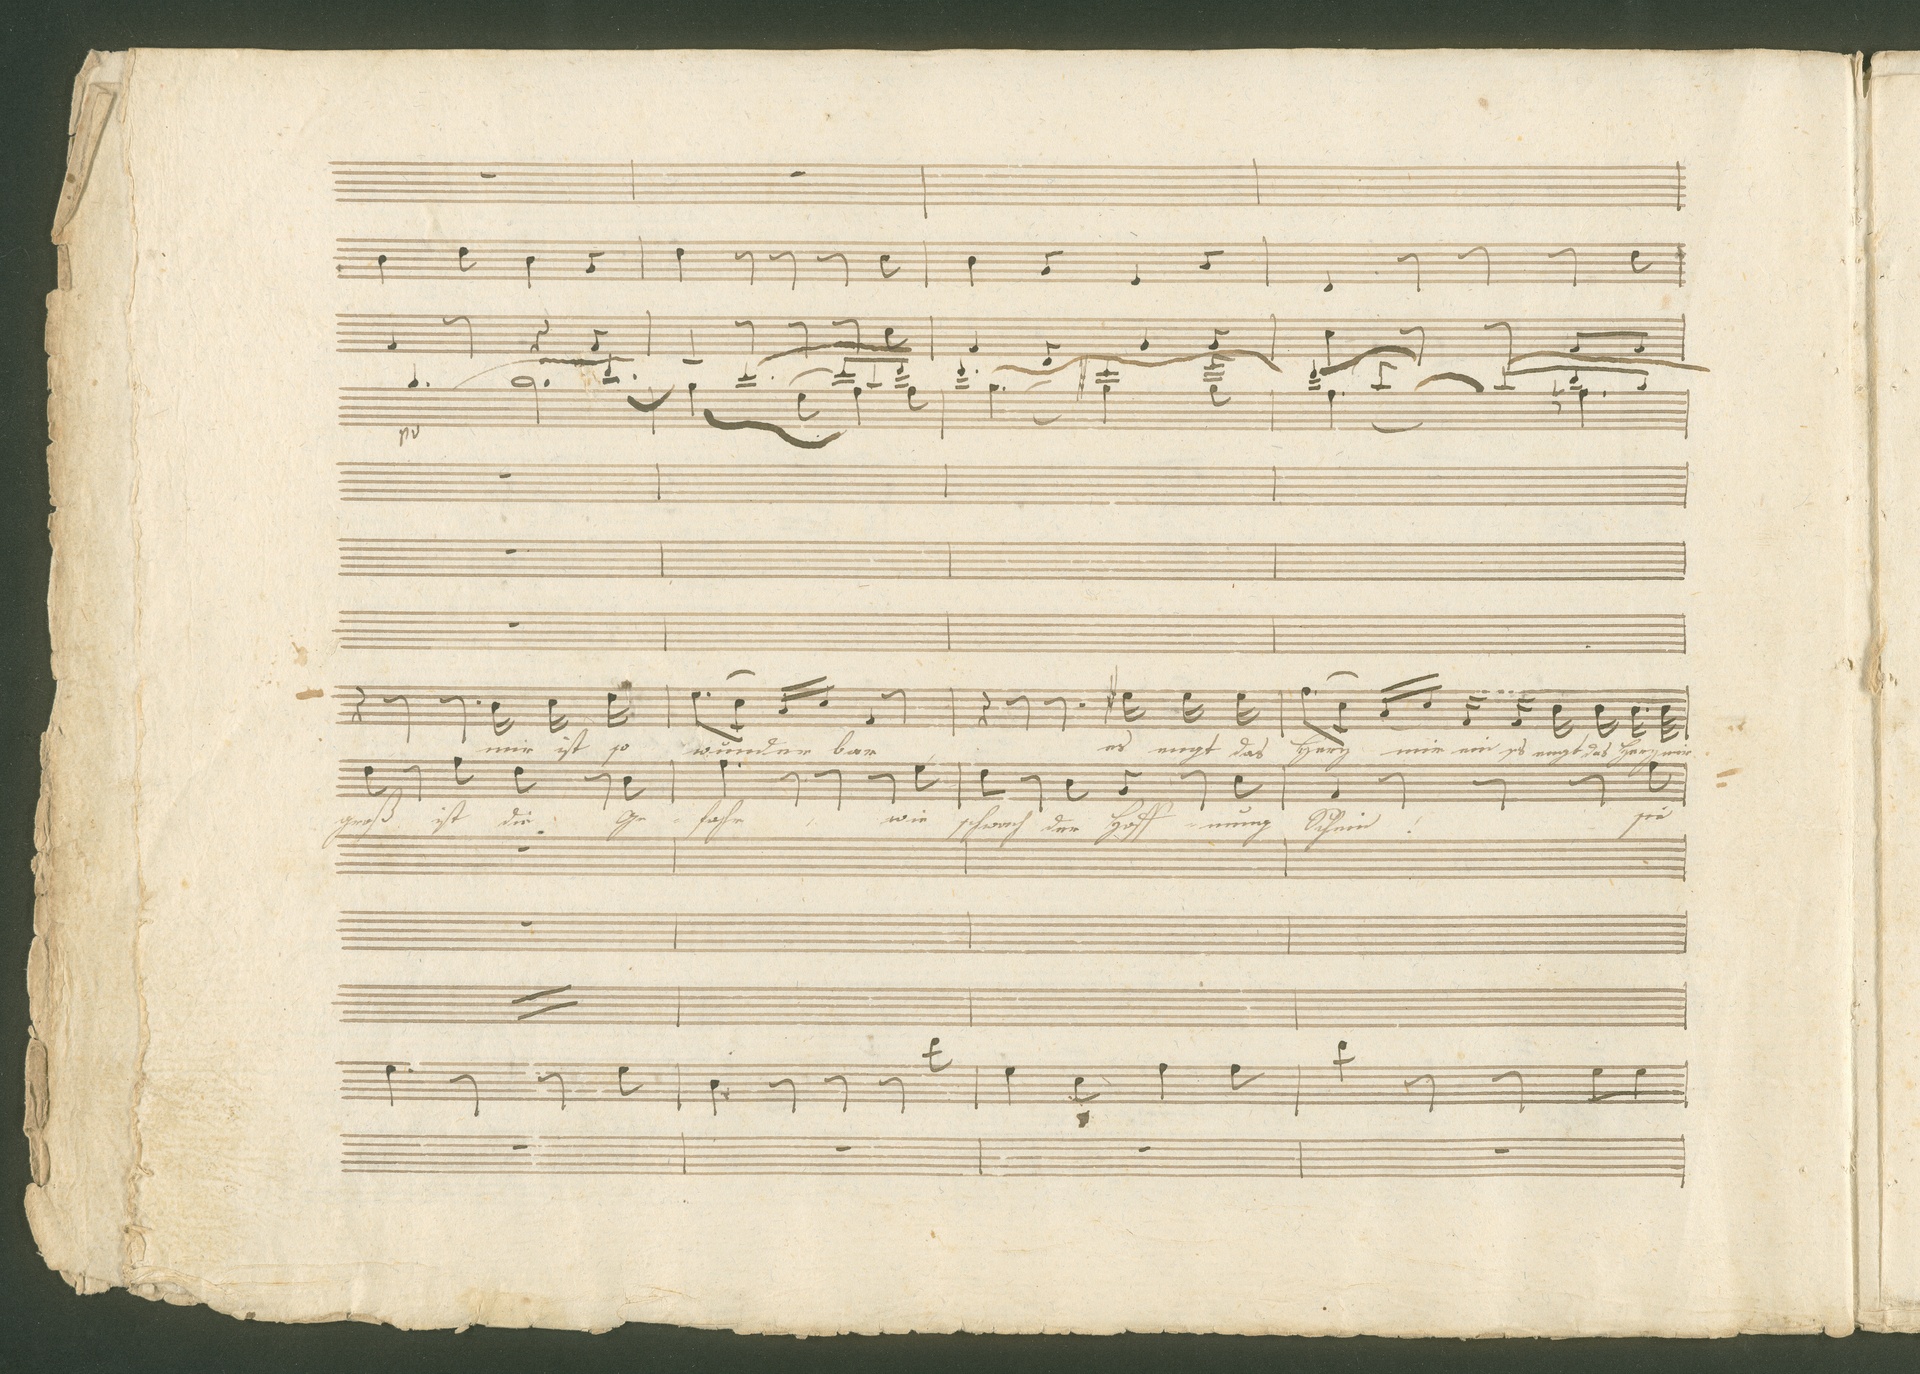 pp
mir ist so wunder bar es engt das Herz mir ein es engt das Herz mir
groß ist die Ge - fahr wie schwach der Hoff - nung Schein ! sie